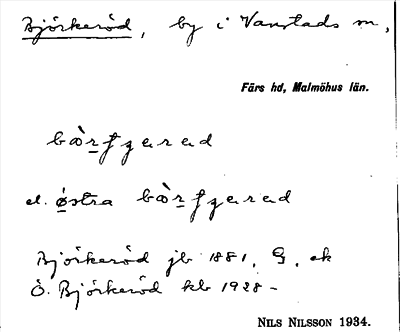 Björkeröd, by i Vanstads sn,
Färs hd, Malmöhus län.
el. östra
Björkeröd jb 1881, G. ek
Ö. Björkeröd kb 1928 -
NILS NILSSON 1934.